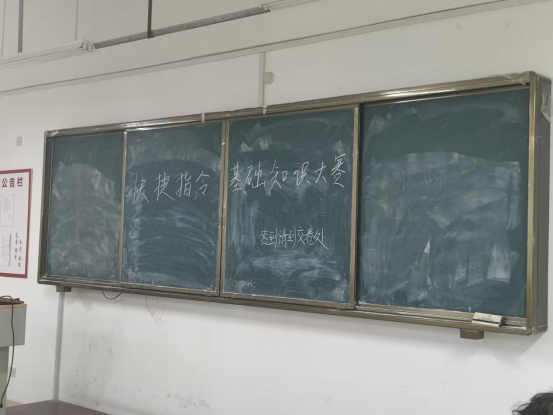 公告栏
快捷指令 基础知识大赛
签到请到交卷处